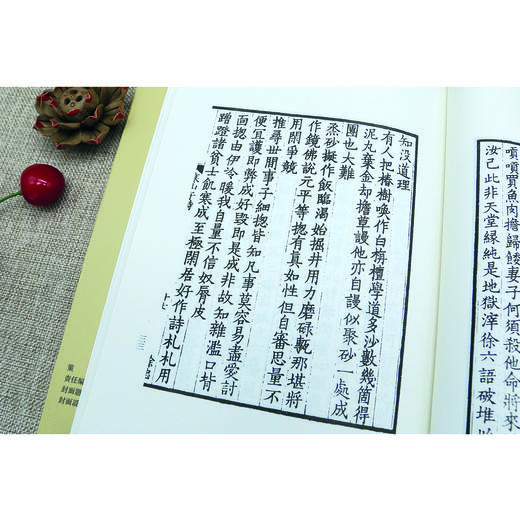 嘖嘖買魚肉擔歸餧妻子何須殺他命將來
汝己此非天堂緣純是地獄滓徐六語破堆
知沒道理
有人把椿樹喚作白栴檀學道多沙數幾箇得
泥丸棄金却擔草謾他亦自謾似聚砂一處成
團也大難
烝砂擬作飯臨渴始掘井用力磨碌甎那堪將
作鏡佛說元平等揔有真如性但自審思量不
用閑爭競
推尋世間事子細揔皆知凡事莫容易盡愛討
便宜護即弊成好毀即是成非故知雜濫口背
面揔由伊冷暖我自量不信奴脣皮
蹭蹬諸貧士飢寒成至極閑居好作詩札札用
十七
三三
策
责任编
封面题
封面设